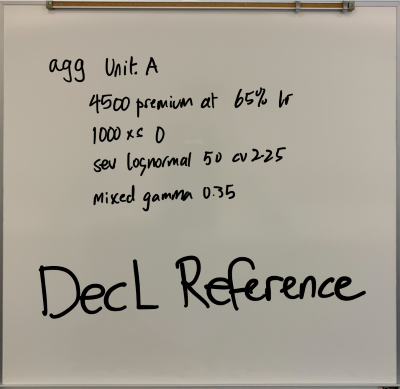 agg Unit.A
4500 premium at 65% lr
1000 xs 0
sev lognormal 50 cv 2.25
mixed gamma 0.35
DecL Reference